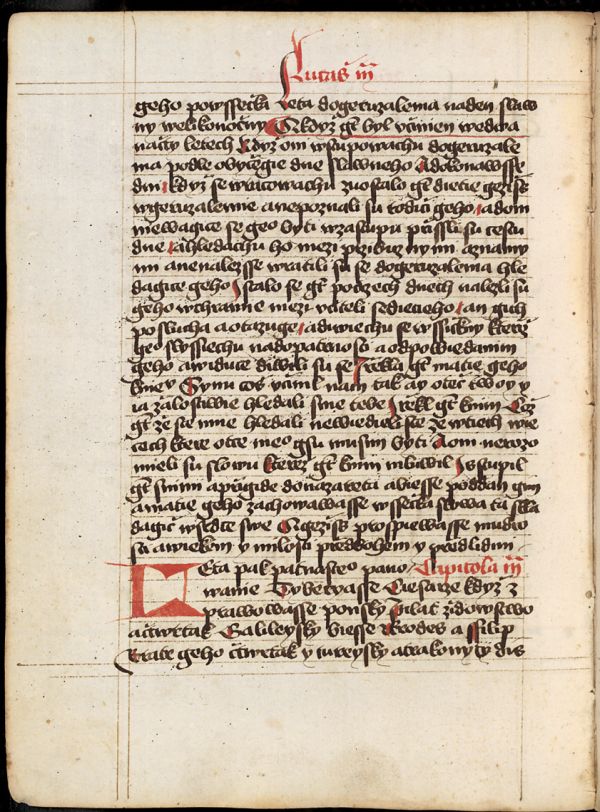 Lucas iii
geho powssecka leta dogeruzalema naden slaw
ny welikonoczny A kdyz gt byl uczinen wedwa
naczty letech kdyz oni wstupowachu dogeruzale
ma podle obyczegie dne slawneho Adokonawsse
dni kdyz se wraczowachu zuostalo gt dietie gezis
wgeruzalemie anepoznali su rodici geho adom
niewagice se geo byti wzastupu prissli su cestu
dne ahledachu ho mezi przibuznymi aznamy
mi anenalezsse wratili su se dogeruzalema hle
dagice geho Istalo se gt potrzech dnech nalezli su
geho wchramie mezi uciteli sedicieho an gich
poslucha aotazuge adiwiechu se wssickny kterzi
geo slyssiechu nadopatrnosti aodpowiedanim
geho awiduce diwili su se Irzekla gt matie geho
kniemu Synu cos ucinil nam tak ay otec twoy y
ia zalostiwie hledali sme tebe Irzekl gt knim Coz
gt ze ste mne hledali newiedieli ste ze wtiech wie
cech ktere otce meo gsu musim byti Aoni nerozo
mieli su slowu kterez gt knim mluwil Isstupil
gt snimi aprigide donazareta abiesse poddan gim
amatie geho zachowawasse wssecka slowa ta skla
dagic wsrdce swe Agezis prospiewasse mudro
sti awiekem y milosti przedbohem y przedlidmi
Leta pak patnasteo pano Capitola iii
wanie Tyberzasse Ciesarze kdyz z
prawowasse ponsky pilat zidowstwo
actwrtak Galileysky biesse herodes a ffilip
bratr geho ctwrtak y itureysky atrakonytydis